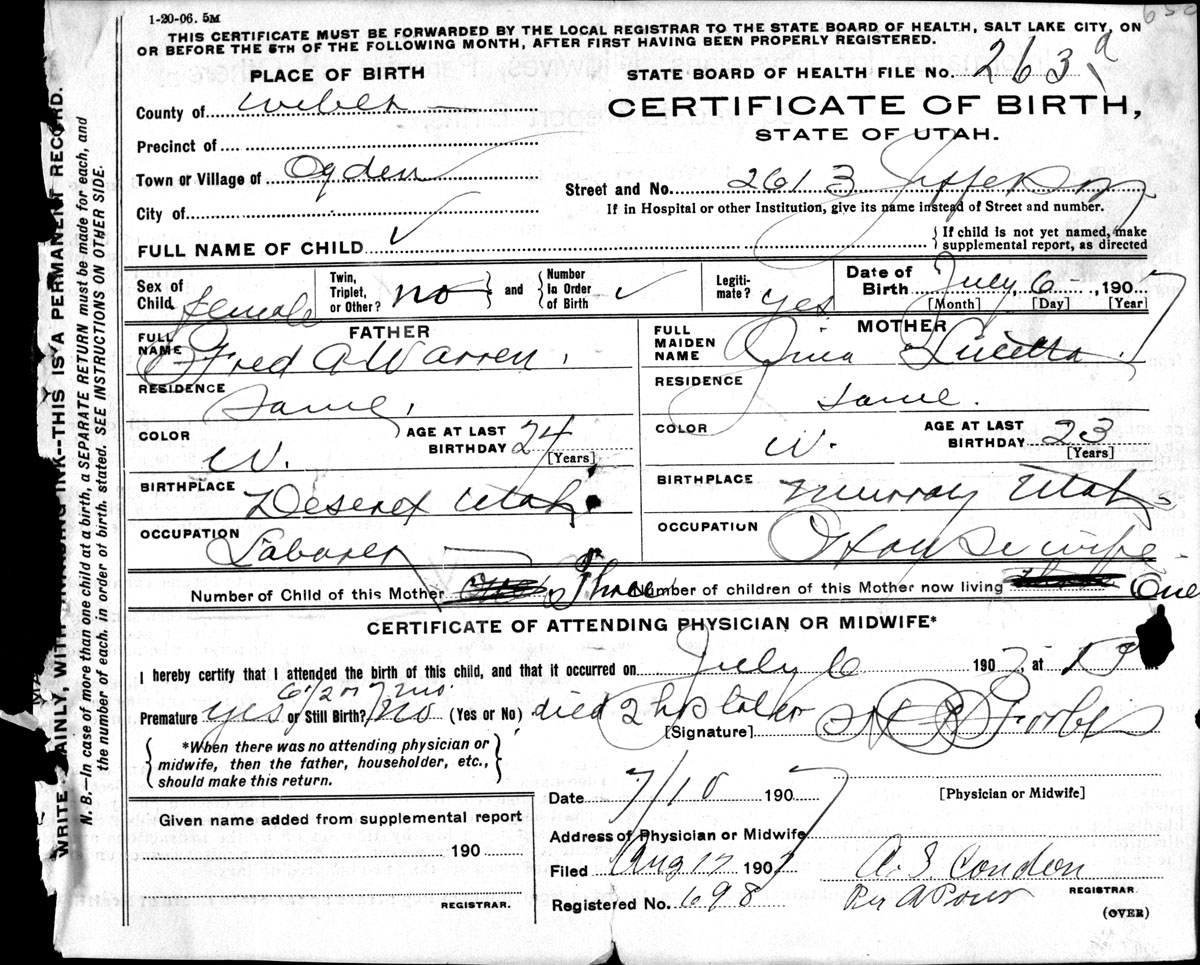 1-20-06. 5M
THIS CERTIFICATE MUST BE FORWARDED BY THE LOCAL REGISTRAR TO THE STATE BOARD OF HEALTH, SALT LAKE CITY, ON
OR BEFORE THE 5TH OF THE FOLLOWING MONTH, AFTER FIRST HAVING BEEN PROPERLY REGISTERED.
PLACE OF BIRTH
STATE BOARD OF HEALTH FILE No. 263
County of Weber
CERTIFICATE OF BIRTH,
STATE OF UTAH.
Precinct of
Town or Village of Ogden
Street and No. 2613 Jefferson
City of
If in Hospital or other Institution, give its name instead of Street and number.
FULL NAME OF CHILD
If child is not yet named, make
supplemental report, as directed
Sex of Child female
Twin, Triplet, or Other? no
and
Number In Order of Birth
Legitimate? yes
Date of Birth July 6, 1907
[Month] [Day] [Year]
FATHER
MOTHER
FULL NAME Fred A Warren
FULL MAIDEN NAME
RESIDENCE Same
RESIDENCE Same.
COLOR W.
AGE AT LAST BIRTHDAY 24 [Years]
COLOR W.
AGE AT LAST BIRTHDAY 23 [Years]
BIRTHPLACE Deseret Utah
BIRTHPLACE Murray Utah
OCCUPATION Laborer
OCCUPATION Housewife
Number of Child of this Mother Three
Number of children of this Mother now living One
CERTIFICATE OF ATTENDING PHYSICIAN OR MIDWIFE*
I hereby certify that I attended the birth of this child, and that it occurred on July 6 1907, at 1 P M
6 1/2 or 7 mo.
Premature yes or Still Birth? No (Yes or No) died 2 hrs later
[Signature] Forbes
*When there was no attending physician or
midwife, then the father, householder, etc.,
should make this return.
Date 7/10 1907
[Physician or Midwife]
Given name added from supplemental report
190
REGISTRAR.
Address of Physician or Midwife
Filed Aug 17 1907 A. S. Condon
REGISTRAR.
Registered No. 698 Per
(OVER)
WRITE PLAINLY, WITH UNFADING INK--THIS IS A PERMANENT RECORD.
N. B.—In case of more than one child at a birth, a SEPARATE RETURN must be made for each, and
the number of each, in order of birth, stated. SEE INSTRUCTIONS ON OTHER SIDE.